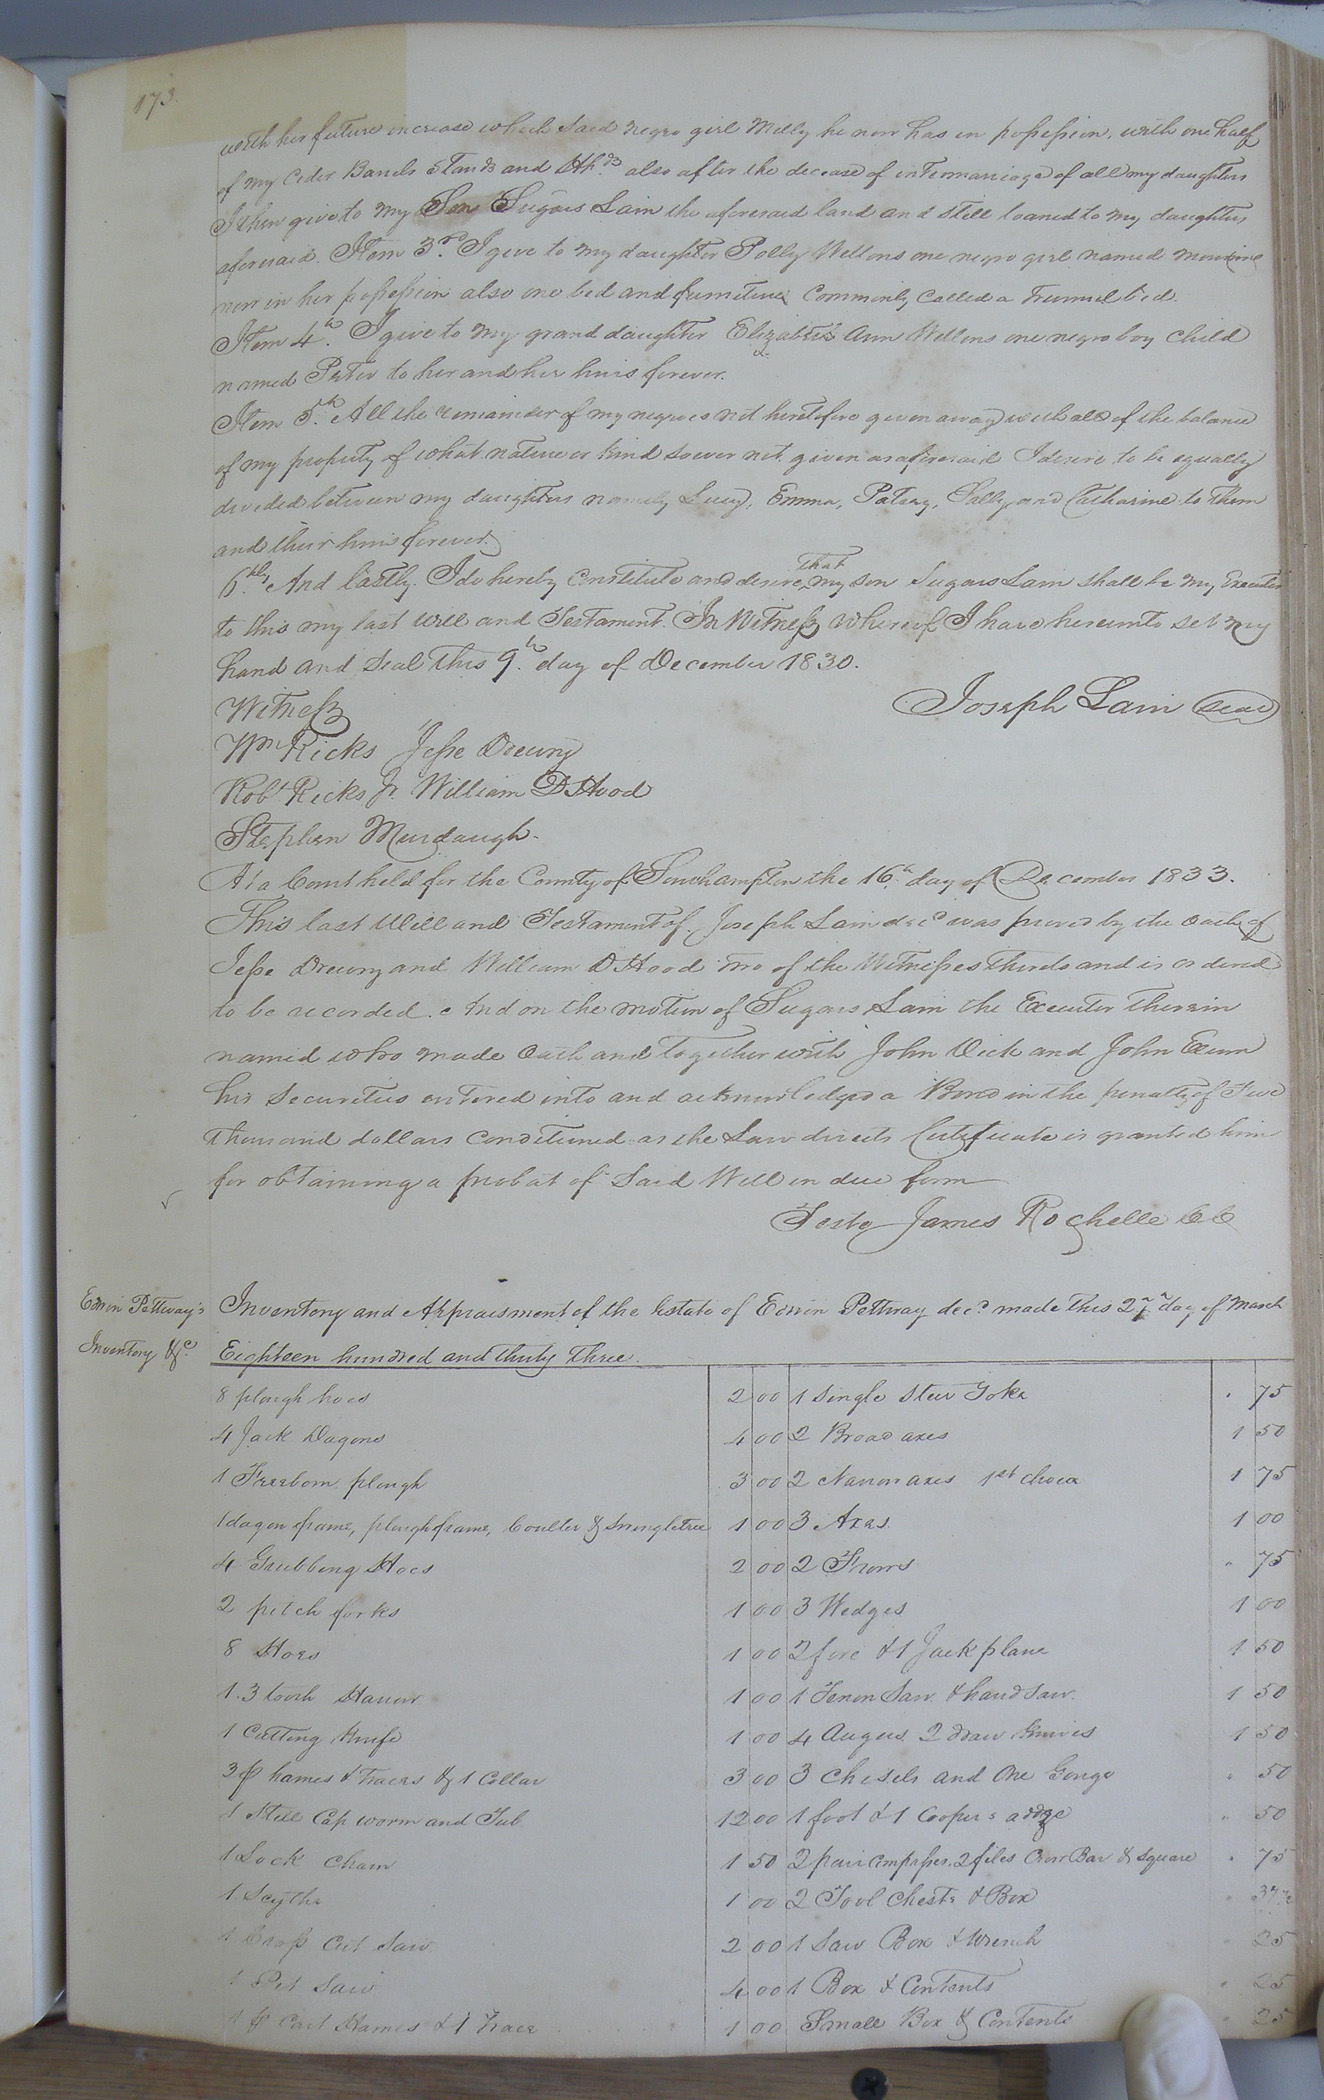 173.
with her future increase which Said negro girl Milly he now has in possession, with one half
of my Cider Barrels Stands and Hhds also after the decease of intermariage of all my daughters
I then give to my Son Sugars Lain the aforesaid land and still loaned to my daughters
aforesaid. Item 3rd. I give to my daughter Polly Wellons one negro girl named
now in her possession also one bed and furniture Commonly Called a Trunnel bed.
Item 4th. I give to my grand daughter Elizabeth Ann Wellons one negro boy Child
named Peter to her and her heirs forever.
Item 5th. All the remainder of my negroes not heretofore given away with all of the balance
of my property of what nature or kind soever not given as aforesaid I desire to be equally
divided between my daughters namely Lucy, Emma, Patsey, Sally, and Catharine to them
and their heirs forever.
6thly. And lastly. I do hereby Constitute and desire that my son Sugars Lain shall be my Executor
to this my last will and Testament. In Witness whereof I have hereunto set my
hand and Seal this 9th. day of December 1830.
Joseph Lain Seal
Witness
Wm Ricks Jesse Drewry
Robt Ricks Jr. William D Hood
Stephen Murdaugh.
At a Court held for the County of Southampton the 16th day of December 1833.
This last Will and Testament of Joseph Lain decd was proved by the oaths of
Jesse Drewry and William D Hood two of the Witnesses thereto and is ordered
to be recorded. And on the motion of Sugars Lain the Executor therein
named who made Oath and together with John Vick and John Exum
his Securities entered into and acknowledged a Bond in the penalty of Five
thousand dollars Conditioned as the Law directs Certificate is granted him
for obtaining a probat of Said Will in due form
Teste James Rochelle CC
Edwin Pettway's
Inventory &c.
Inventory and Appraisment of the Estate of Edwin Pettway decd made this 2nd day of March
Eighteen hundred and thirty three.
8 plough hoes 2 00 1 Single Steer Yoke " 75
4 Jack Dagons 4 00 2 Broad axes 1 50
1 Freeborn plough 3 00 2 Narrow axes 1st choice 1 75
1 dagon frame, plough frame, Coulter & Swingletree 1 00 3 Axes. 1 00
4 Grubbing Hoes 2 00 2 Frows " 75
2 pitch forks 1 00 3 Wedges 1 00
8 Hoes 1 00 2 fore & 1 Jack plane 1 50
1. 3 tooth Harrow 1 00 1 Tenon Saw & hand Saw. 1 50
1 Cutting Knife 1 00 4 Augers 2 draw Knives 1 50
3 pr hames & Traces & 1 Collar 3 00 3 Chisels and One Gouge " 50
1 Still Cap worm and Tub 12 00 1 foot & 1 Coopers addze " 50
1 Lock Chain 1 50 2 pair Compasses. 2 files Crow Bar & Square " 75
1 Scythe 1 00 2 Tool Chests & Box " 37½
1 Cross Cut Saw 2 00 1 Saw Box & Wrench " 25
1 Pit Saw 4 00 1 Box & Contents " 25
1 pr Cart Hames & 1 Trace 1 00 Small Box & Contents " 25